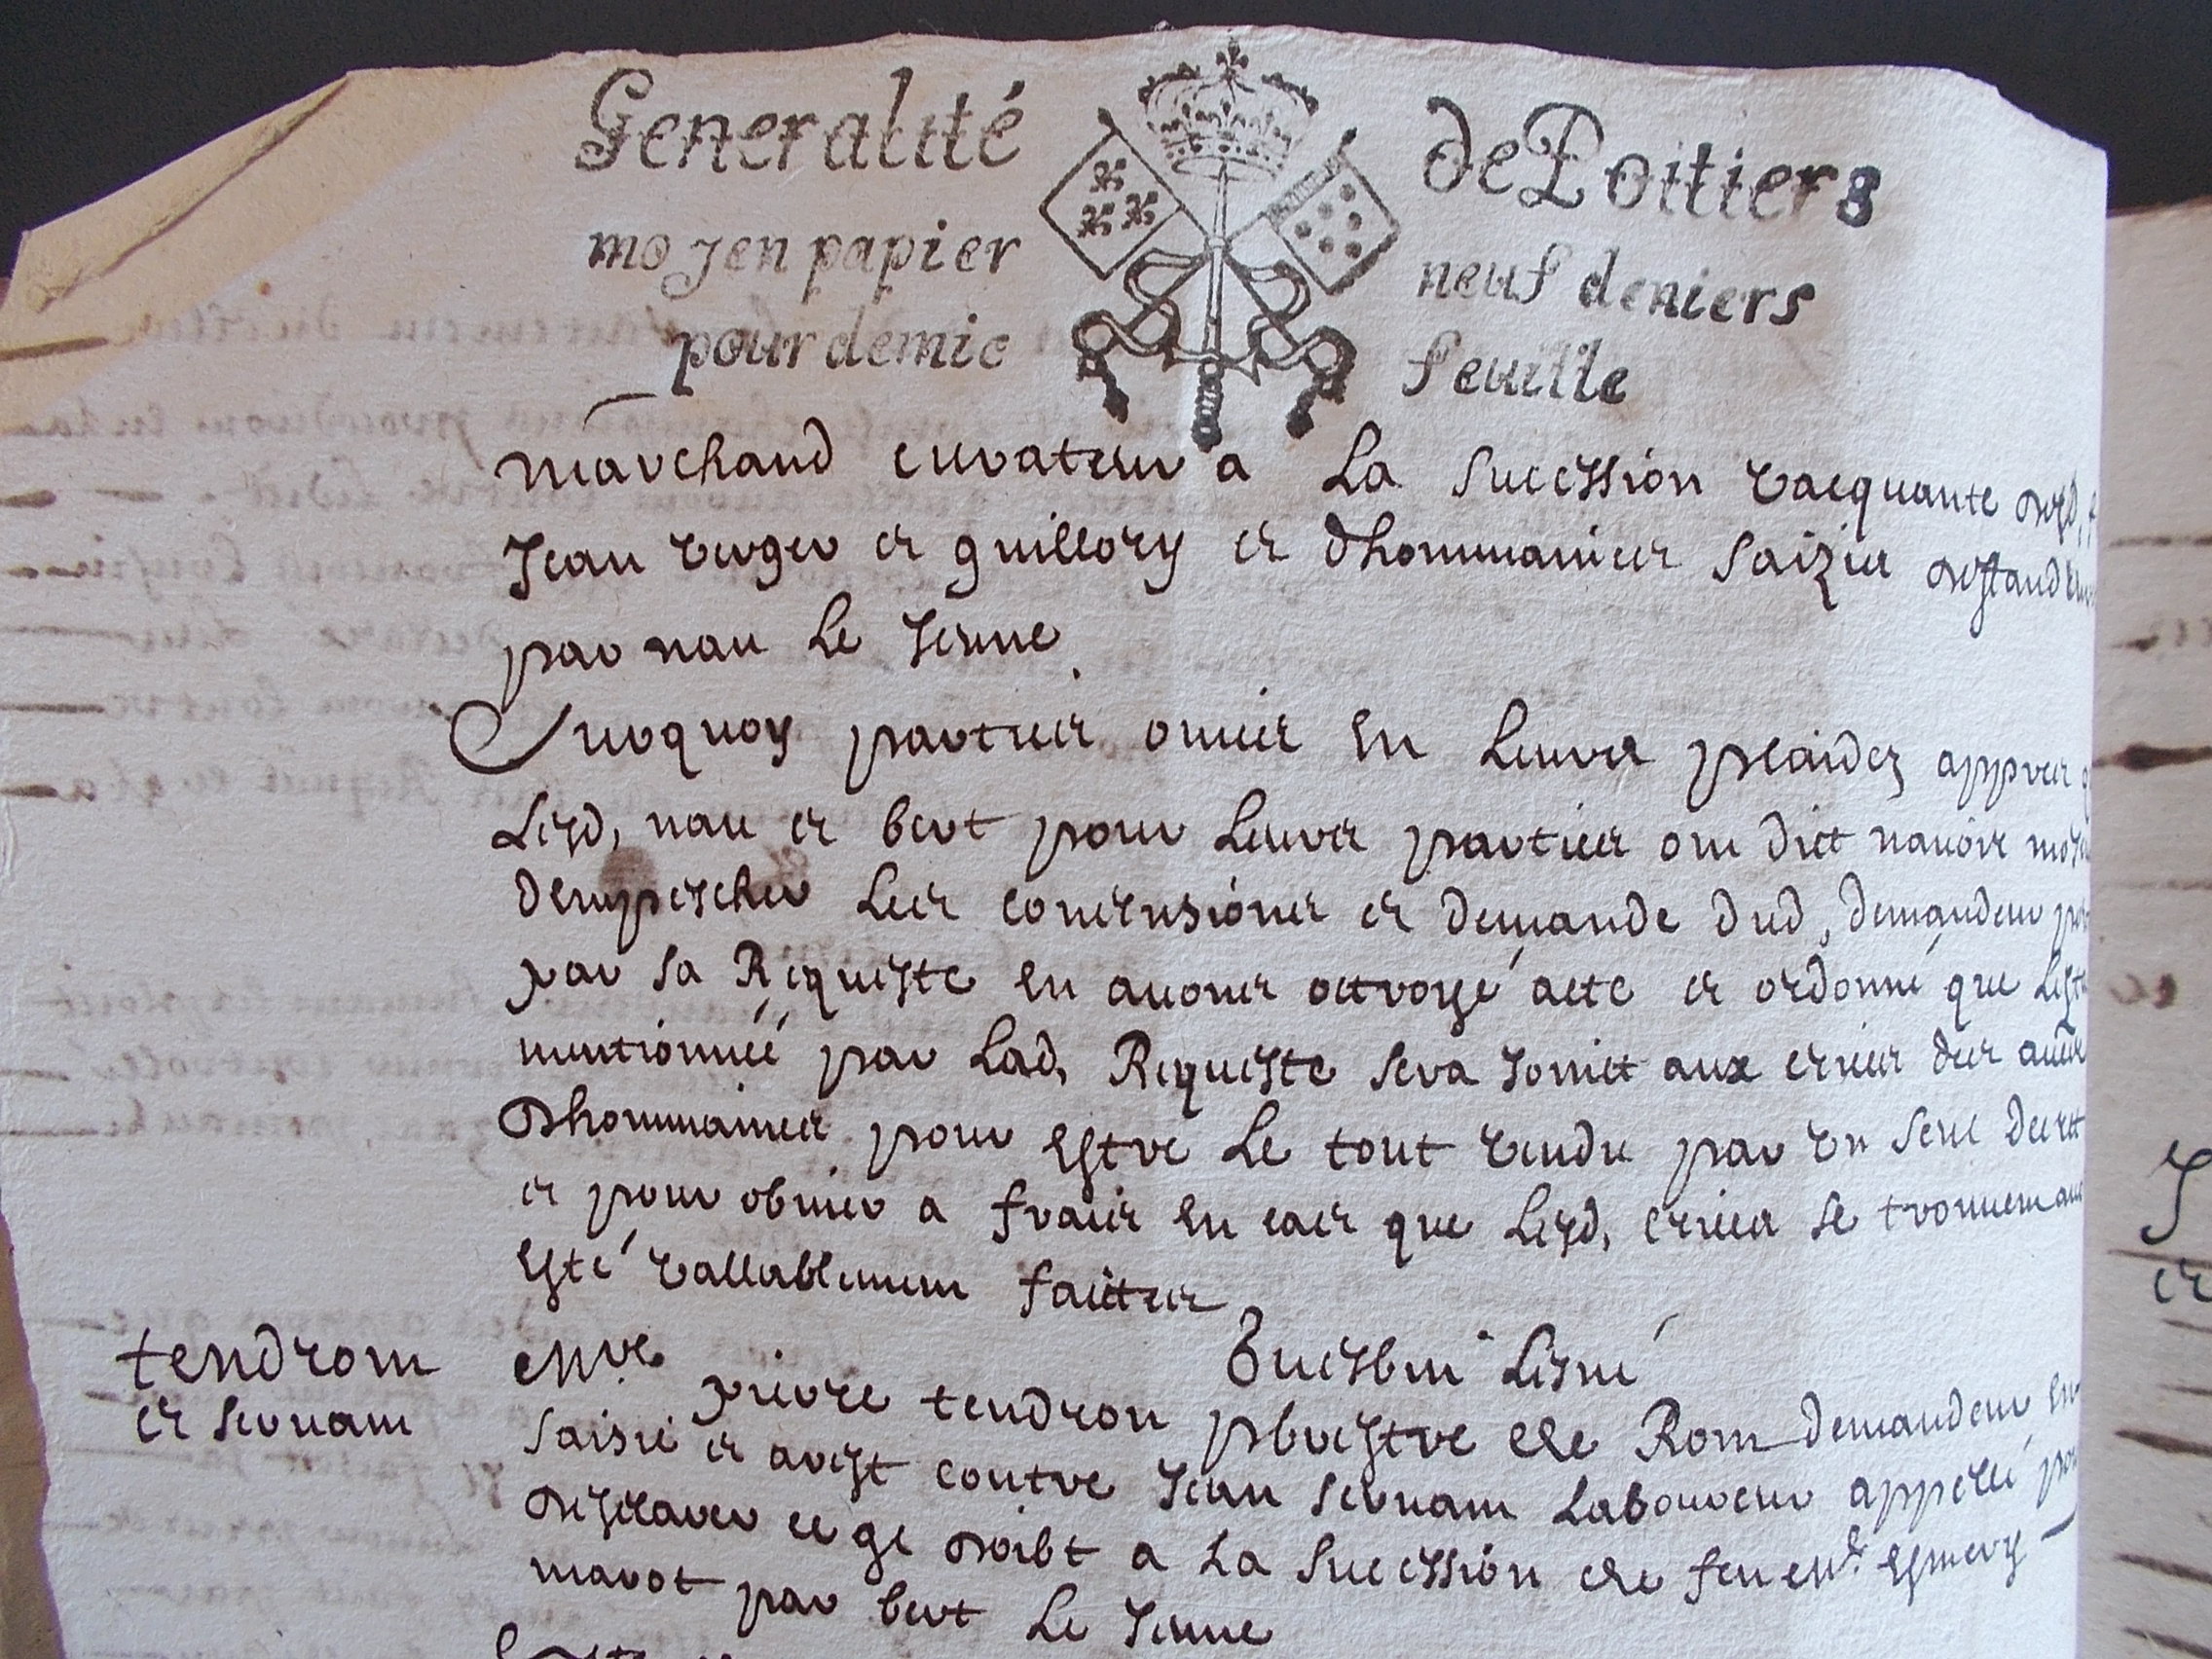 Generalité de Poitiers
moyen papier neuf deniers
pour demie feuille
marchand curateur a La Succession vacquante desd,
Jean verger et guillory et dhommaniere Saizies
par nau Le Jeune
Surquoy parties ouies En Leurs plaidez appres
Lesd, nau et bert pour Leurs parties ont dict navoir moyen
dempescher Les conclusions et demande dud, demandeur
par Sa Requeste En avons octroyé acte et ordonné que
mentionnée par Lad, Requeste Sera Joinct aux criées des
dhommaniere pour Estre Le tout vendu par un Seul decret
et pour obvier a fraies En cas que Lesd, criees Se
Esté vallablement faictes
tendron
et Servant
Mre pierre tendron pbrestre de Rom demandeur En
Saisie et arest contre Jean Servant Laboureur appellé
desclarer ce qe doibt a La Succession de feu Me Esmery
marot par bert Le Jeune